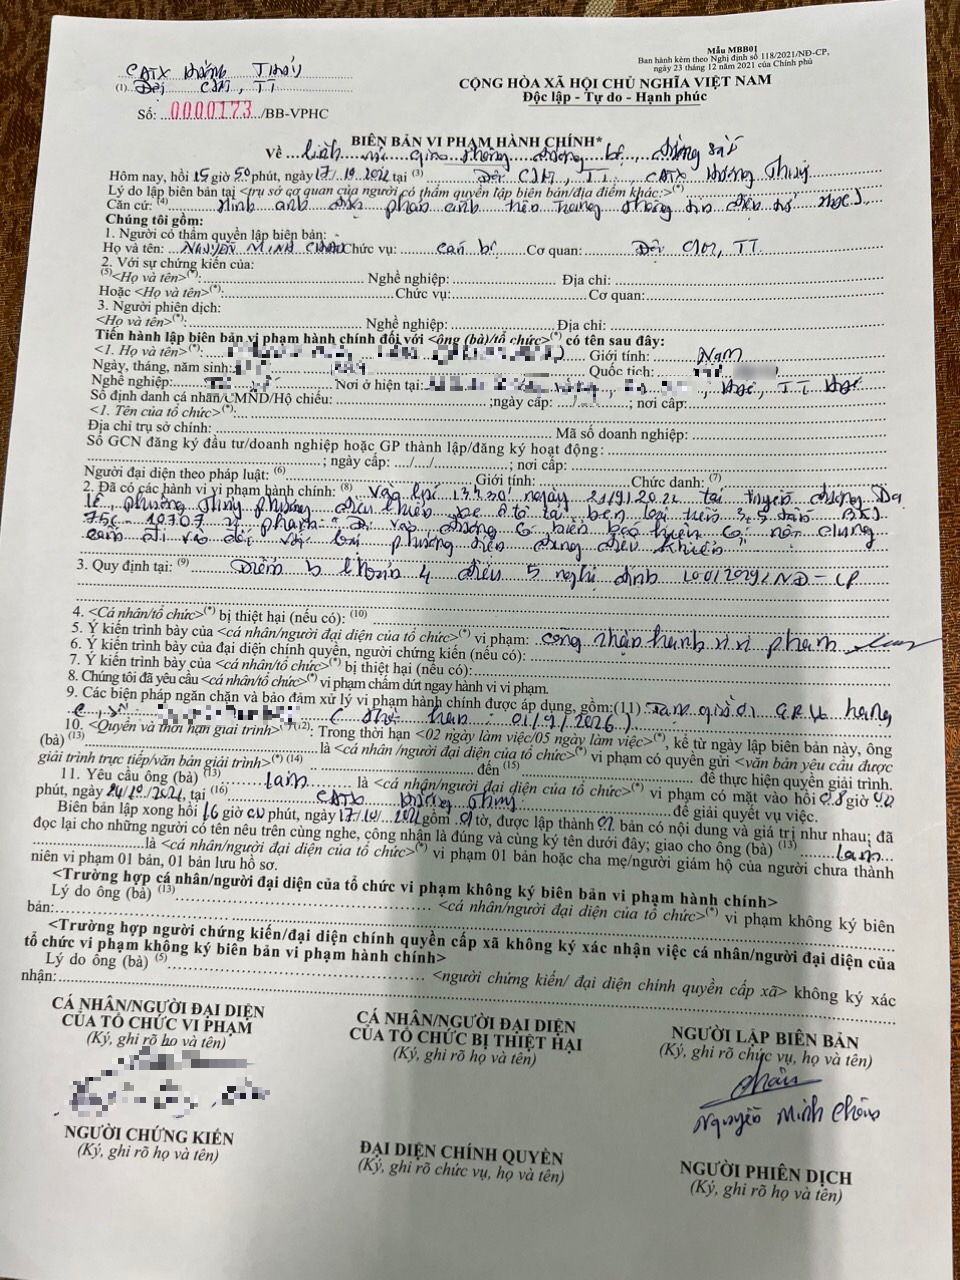 Mẫu MBB01
Ban hành kèm theo Nghị định số 118/2021/NĐ-CP,
ngày 23 tháng 12 năm 2021 của Chính phủ
CATX Hương Thủy
(1) Đội CSGT, TT
Số: 0000173/BB-VPHC
CỘNG HÒA XÃ HỘI CHỦ NGHĨA VIỆT NAM
Độc lập - Tự do - Hạnh phúc
BIÊN BẢN VI PHẠM HÀNH CHÍNH*
Về lĩnh vực giao thông đường bộ, đường sắt
Hôm nay, hồi 15 giờ 50 phút, ngày 17/10/2024 tại (3) Đội CSGT, TT, CATX Hương Thủy
Lý do lập biên bản tại <trụ sở cơ quan của người có thẩm quyền lập biên bản/địa điểm khác>(*)
Căn cứ: (4) Hình ảnh phản ánh trên trang thông tin điện tử
Chúng tôi gồm:
1. Người có thẩm quyền lập biên bản:
Họ và tên: NGUYỄN MINH CHÂU Chức vụ: cán bộ Cơ quan: Đội CSGT, TT.
2. Với sự chứng kiến của:
(5)<Họ và tên>(*): Nghề nghiệp: Địa chỉ:
Hoặc <Họ và tên>(*): Chức vụ: Cơ quan:
3. Người phiên dịch:
<Họ và tên>(*): Nghề nghiệp: Địa chỉ:
Tiến hành lập biên bản vi phạm hành chính đối với <ông (bà)/tổ chức>(*) có tên sau đây:
<1. Họ và tên>(*): Giới tính: Nam
Ngày, tháng, năm sinh: Quốc tịch:
Nghề nghiệp: Nơi ở hiện tại: Huế, TT Huế
Số định danh cá nhân/CMND/Hộ chiếu: ;ngày cấp: / / ; nơi cấp:
<1. Tên của tổ chức>(*):
Địa chỉ trụ sở chính: Mã số doanh nghiệp:
Số GCN đăng ký đầu tư/doanh nghiệp hoặc GP thành lập/đăng ký hoạt động:
; ngày cấp: / / ; nơi cấp:
Người đại diện theo pháp luật: (6) Giới tính: Chức danh: (7)
2. Đã có các hành vi vi phạm hành chính: (8) Vào lúc 13h30' ngày 21/9/2024 tại tuyến đường Dạ
Lê, phường Thủy Phương điều khiển xe ô tô tải ben loại trên 3,5 tấn BKS
75C - 10707 vi phạm: "Đi vào đường có biển báo hiệu có nội dung
cấm đi vào đối với loại phương tiện đang điều khiển"
3. Quy định tại: (9) Điểm b khoản 4 điều 5 nghị định 100/2019/NĐ-CP
4. <Cá nhân/tổ chức>(*) bị thiệt hại (nếu có): (10)
5. Ý kiến trình bày của <cá nhân/người đại diện của tổ chức>(*) vi phạm: công nhận hành vi vi phạm
6. Ý kiến trình bày của đại diện chính quyền, người chứng kiến (nếu có):
7. Ý kiến trình bày của <cá nhân/tổ chức>(*) bị thiệt hại (nếu có):
8. Chúng tôi đã yêu cầu <cá nhân/tổ chức>(*) vi phạm chấm dứt ngay hành vi vi phạm.
9. Các biện pháp ngăn chặn và bảo đảm xử lý vi phạm hành chính được áp dụng, gồm:(11) Tạm giữ 01 GPLX hạng
C, số: (Thời hạn: 01/7/2026)
10. <Quyền và thời hạn giải trình>(*)(12): Trong thời hạn <02 ngày làm việc/05 ngày làm việc>(*), kể từ ngày lập biên bản này, ông
(bà) (13) là <cá nhân /người đại diện của tổ chức>(*) vi phạm có quyền gửi <văn bản yêu cầu được
giải trình trực tiếp/văn bản giải trình>(*) (14) đến (15) để thực hiện quyền giải trình.
11. Yêu cầu ông (bà) (13) là <cá nhân/người đại diện của tổ chức>(*) vi phạm có mặt vào hồi 08 giờ 00
phút, ngày 24/10/2024, tại (16) CATX Hương Thủy để giải quyết vụ việc.
Biên bản lập xong hồi 16 giờ 00 phút, ngày 17/10/2024 gồm 01 tờ, được lập thành 02 bản có nội dung và giá trị như nhau; đã
đọc lại cho những người có tên nêu trên cùng nghe, công nhận là đúng và cùng ký tên dưới đây; giao cho ông (bà) (13)
là <cá nhân/người đại diện của tổ chức>(*) vi phạm 01 bản hoặc cha mẹ/người giám hộ của người chưa thành
niên vi phạm 01 bản, 01 bản lưu hồ sơ.
<Trường hợp cá nhân/người đại diện của tổ chức vi phạm không ký biên bản vi phạm hành chính>
Lý do ông (bà) (13) <cá nhân/người đại diện của tổ chức>(*) vi phạm không ký biên
bản:
<Trường hợp người chứng kiến/đại diện chính quyền cấp xã không ký xác nhận việc cá nhân/người đại diện của
tổ chức vi phạm không ký biên bản vi phạm hành chính>
Lý do ông (bà) (5) <người chứng kiến/ đại diện chính quyền cấp xã> không ký xác
nhận:
CÁ NHÂN/NGƯỜI ĐẠI DIỆN
CỦA TỔ CHỨC VI PHẠM
(Ký, ghi rõ họ và tên)
CÁ NHÂN/NGƯỜI ĐẠI DIỆN
CỦA TỔ CHỨC BỊ THIỆT HẠI
(Ký, ghi rõ họ và tên)
NGƯỜI LẬP BIÊN BẢN
(Ký, ghi rõ chức vụ, họ và tên)
Châu
Nguyễn Minh Châu
NGƯỜI CHỨNG KIẾN
(Ký, ghi rõ họ và tên)
ĐẠI DIỆN CHÍNH QUYỀN
(Ký, ghi rõ chức vụ, họ và tên)
NGƯỜI PHIÊN DỊCH
(Ký, ghi rõ họ và tên)